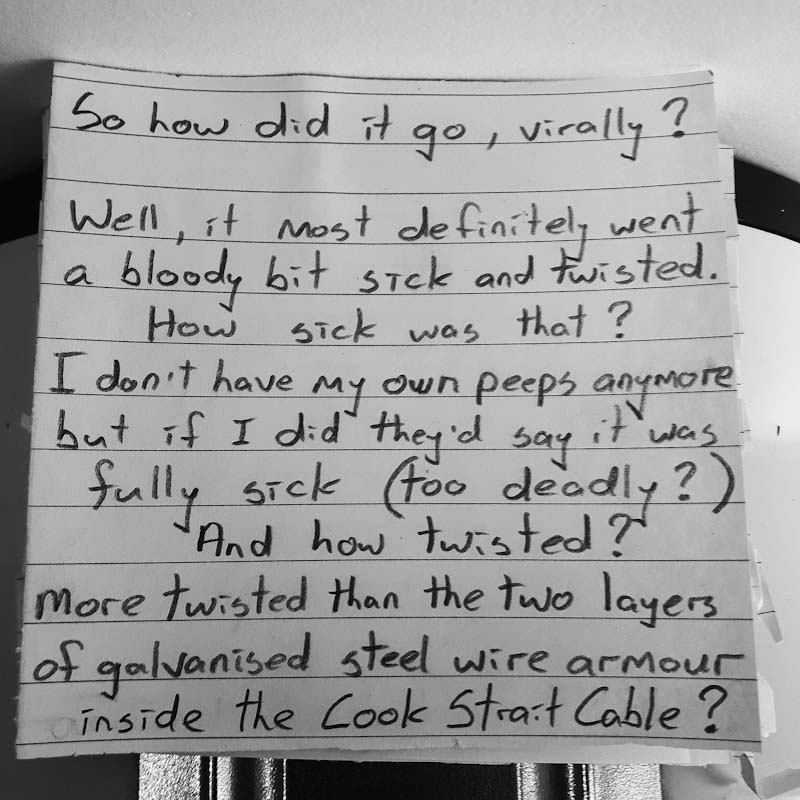 So how did it go, virally?
Well, it most definitely went
a bloody bit sick and twisted.
How sick was that?
I don't have my own peeps anymore
but if I did they'd say it was
fully sick (too deadly?)
And how twisted?
More twisted than the two layers
of galvanised steel wire armour
inside the Cook Strait Cable?